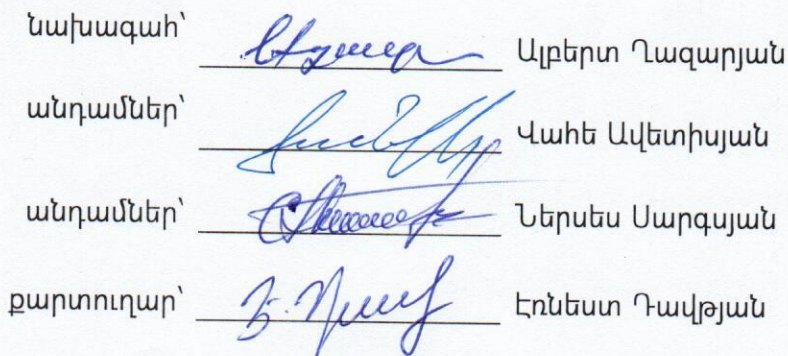 նախագահ՝ Ալբերտ Ղազարյան
անդամներ՝ Վահե Ավետիսյան
անդամներ՝ Ներսես Սարգսյան
քարտուղար՝ Էռնեստ Դավթյան